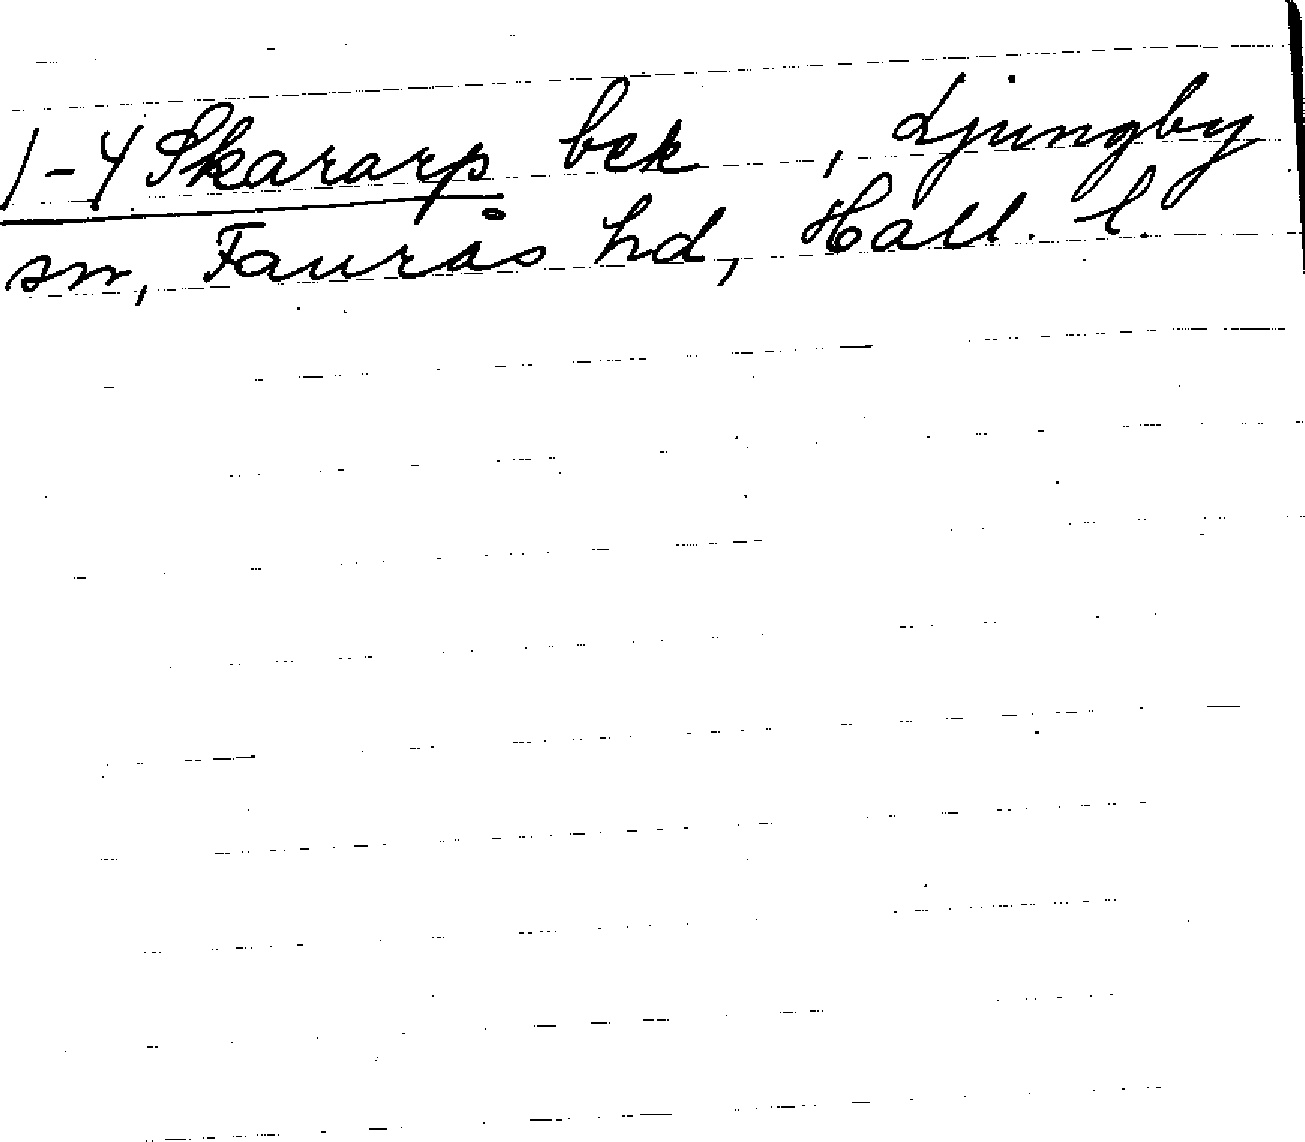 1-4 Skararp bek , Ljungby
sn, Faurås hd, Hall. l.